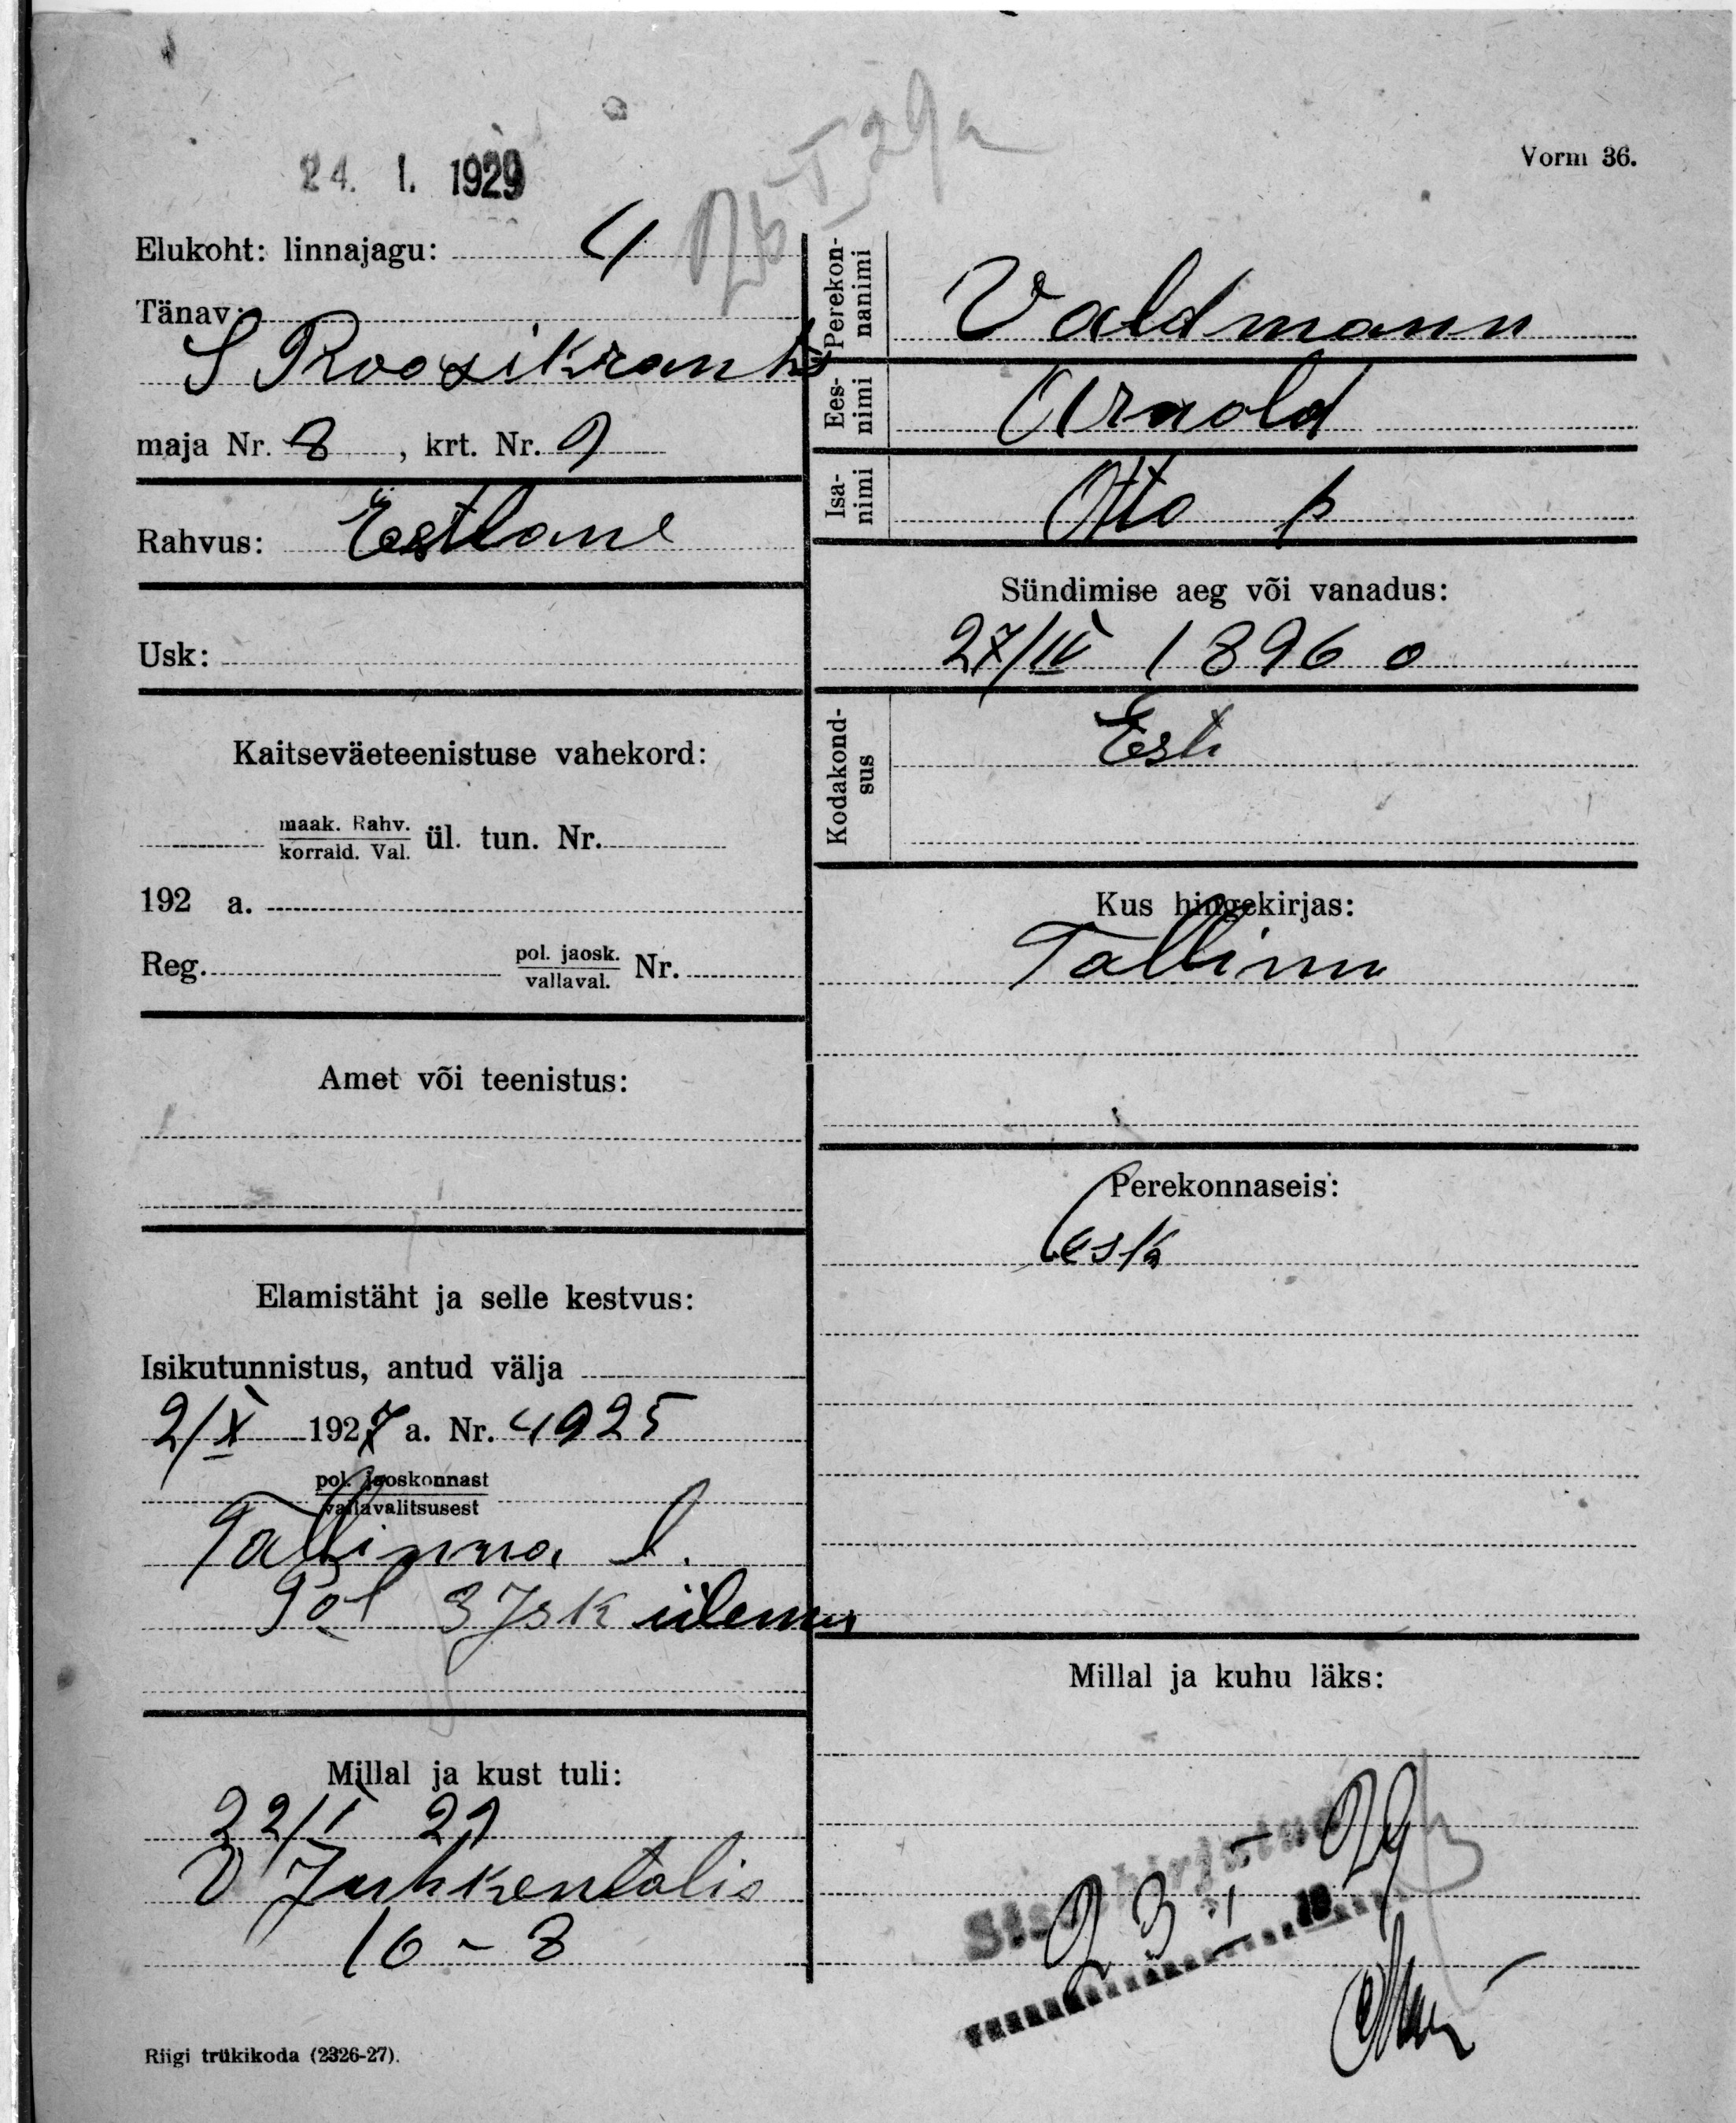 24. I. 1929
26 I 29a
Vorm 36.
Elukoht: linnajagu: 4
Tänav:
S Roosikrants
maja Nr. 8 , krt. Nr. 9
Rahvus: Eestlane
Usk:
Kaitseväeteenistuse vahekord:
maak. Rahv.
korrald. Val. ül. tun. Nr.
192 a.
Reg. pol. jaosk.
vallaval. Nr.
Amet või teenistus:
Elamistäht ja selle kestvus:
Isikutunnistus, antud välja
2/X 1927 a. Nr. 4925
pol. jaoskonnast
vallavalitsusest
Tallinna l.
Pol 3 Jsk ülema
Millal ja kust tuli:
22/I 29
V Juhkentalis
16 - 8
Riigi trükikoda (2326-27).
Perekon-
nanimi Valdmann
Ees-
nimi Arnold
Isa-
nimi Otto p
Sündimise aeg või vanadus:
27/IV 1896 o
Kodakond-
sus Esti
Kus hingekirjas:
Tallinn
Perekonnaseis:
Lesk
Millal ja kuhu läks:
Sissekirjutud
23 I 1929